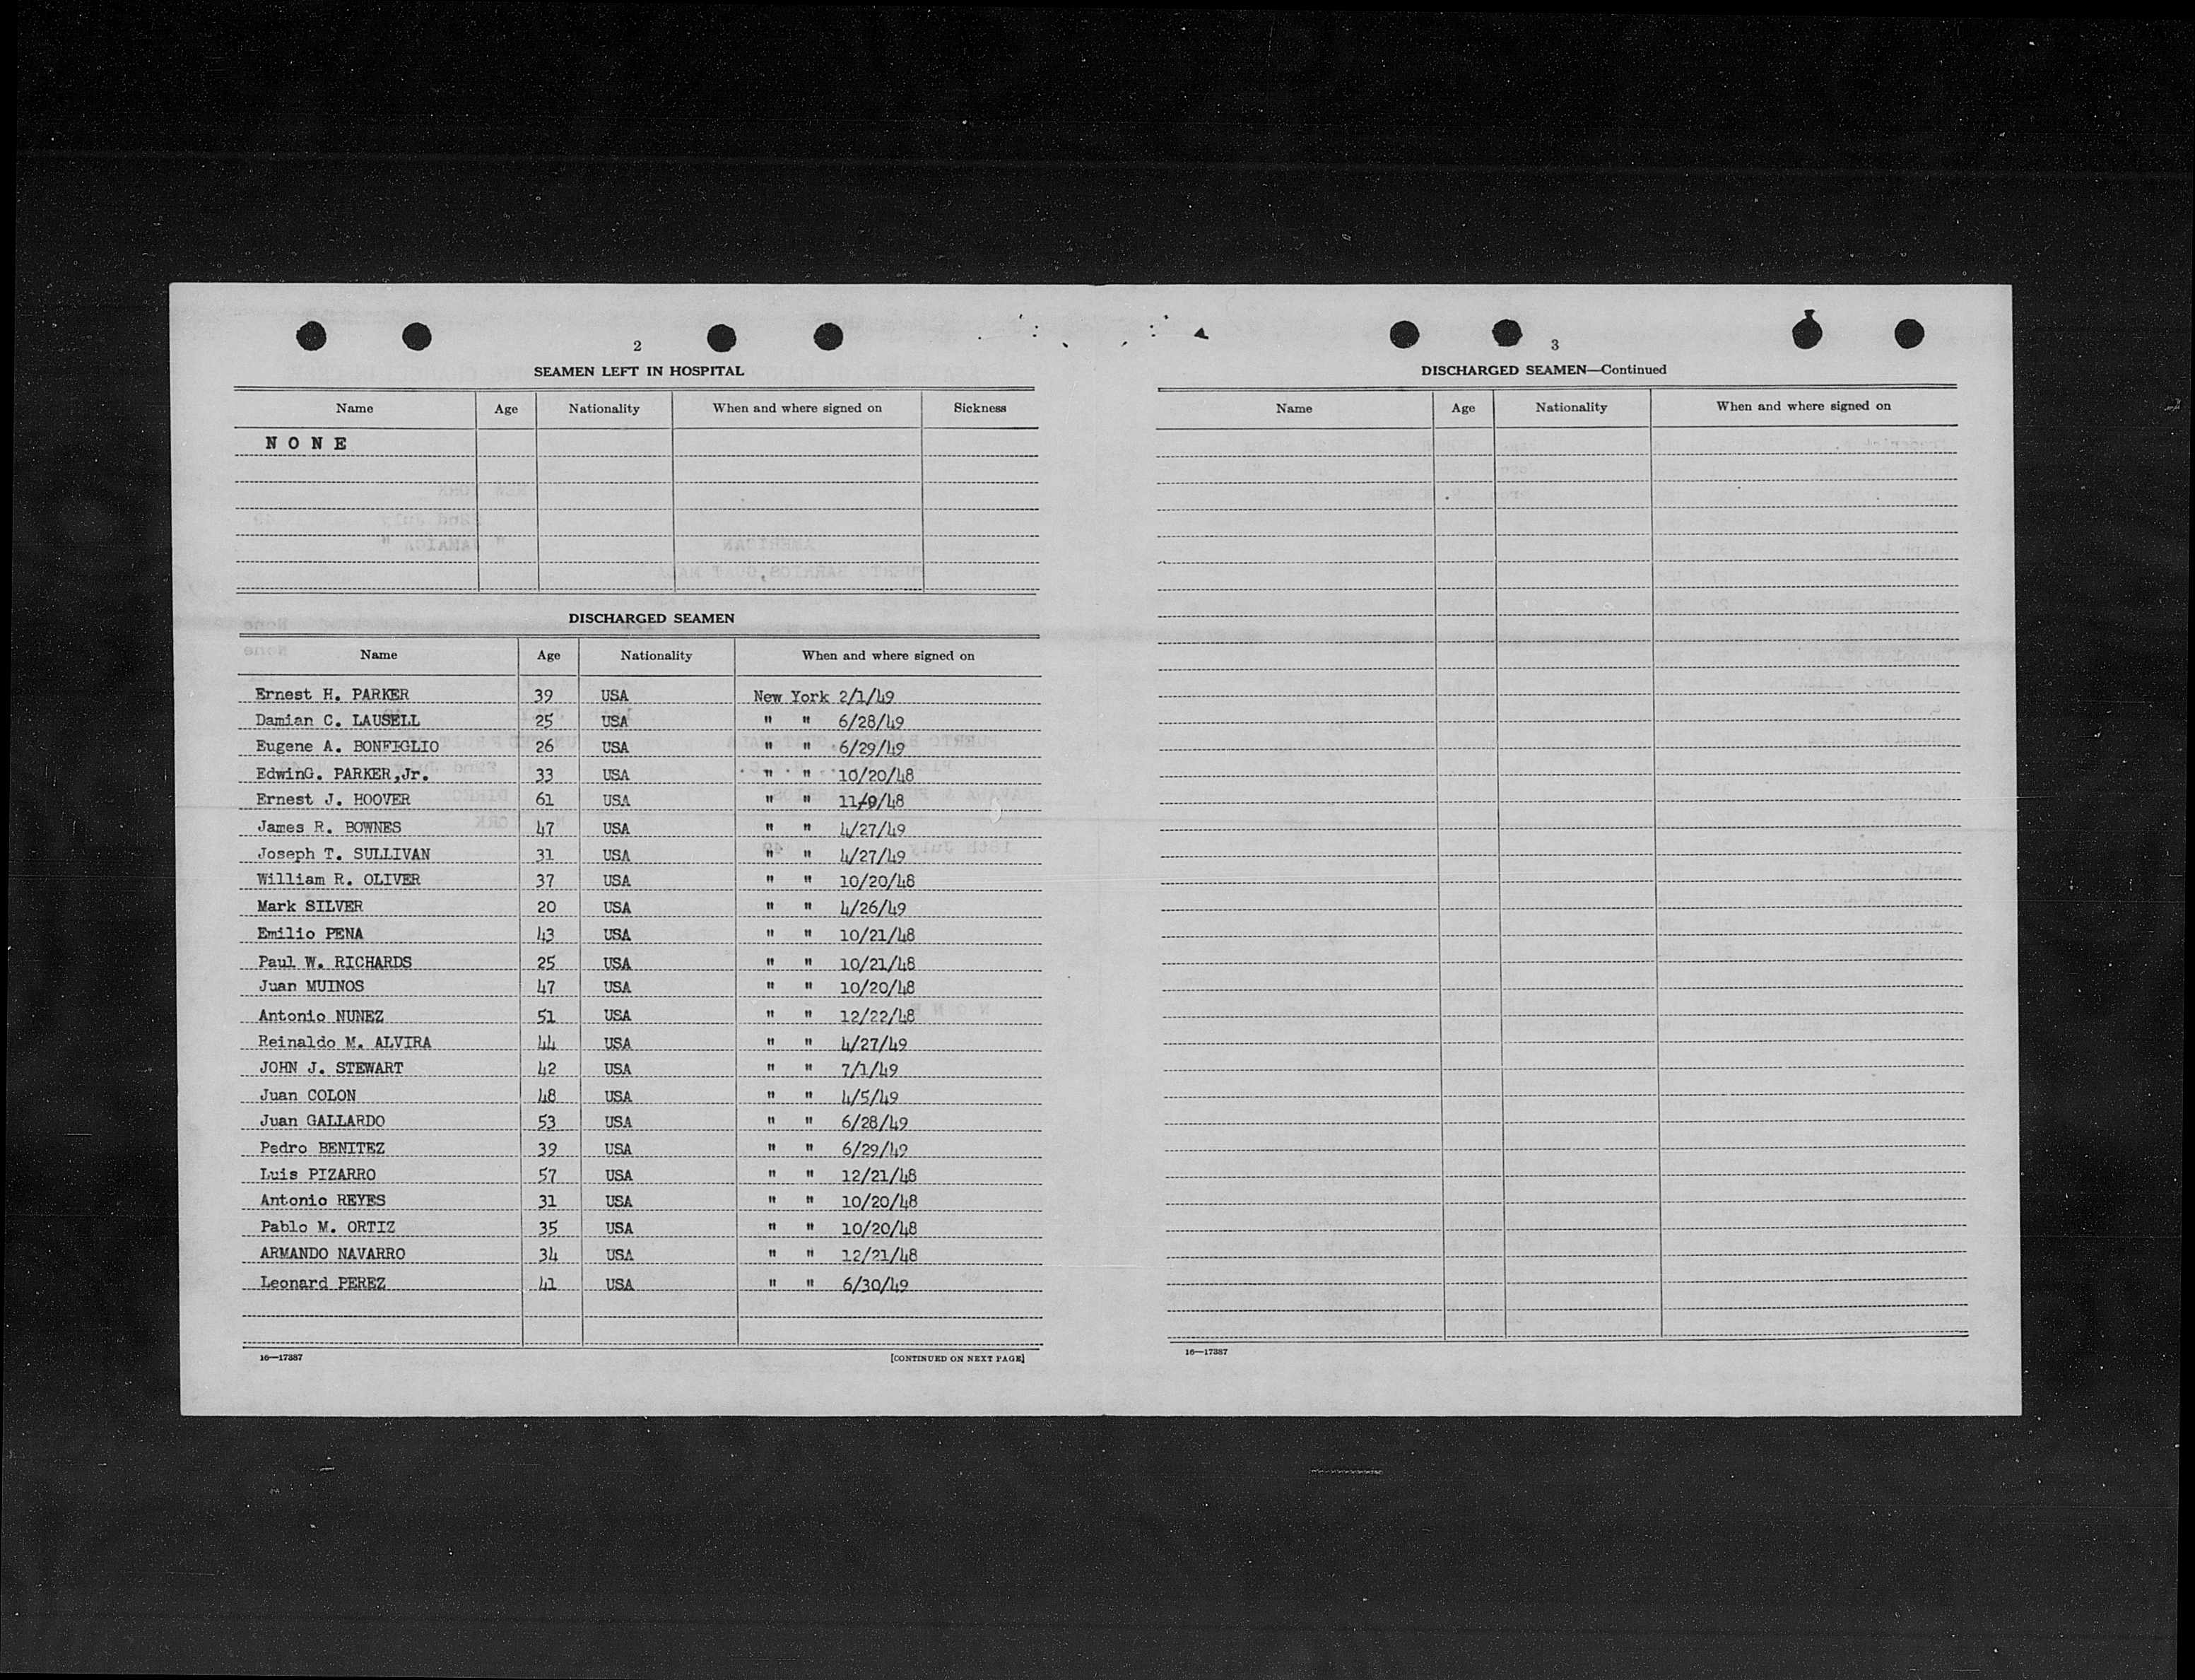 2
SEAMEN LEFT IN HOSPITAL
Name Age Nationality When and where signed on Sickness
N O N E
DISCHARGED SEAMEN
Name Age Nationality When and where signed on
Ernest H. PARKER 39 USA New York 2/1/49
Damian C. LAUSELL 25 USA " " 6/28/49
Eugene A. BONFIGLIO 26 USA " " 6/29/49
EdwinG. PARKER,Jr. 33 USA " " 10/20/48
Ernest J. HOOVER 61 USA " " 11/9/48
James R. BOWNES 47 USA " " 4/27/49
Joseph T. SULLIVAN 31 USA " " 4/27/49
William R. OLIVER 37 USA " " 10/20/48
Mark SILVER 20 USA " " 4/26/49
Emilio PENA 43 USA " " 10/21/48
Paul W. RICHARDS 25 USA " " 10/21/48
Juan MUINOS 47 USA " " 10/20/48
Antonio NUNEZ 51 USA " " 12/22/48
Reinaldo M. ALVIRA 44 USA " " 4/27/49
JOHN J. STEWART 42 USA " " 7/1/49
Juan COLON 48 USA " " 4/5/49
Juan GALLARDO 53 USA " " 6/28/49
Pedro BENITEZ 39 USA " " 6/29/49
Luis PIZARRO 57 USA " " 12/21/48
Antonio REYES 31 USA " " 10/20/48
Pablo M. ORTIZ 35 USA " " 10/20/48
ARMANDO NAVARRO 34 USA " " 12/21/48
Leonard PEREZ 41 USA " " 6/30/49
16—17387 [CONTINUED ON NEXT PAGE]
3
DISCHARGED SEAMEN—Continued
Name Age Nationality When and where signed on
16—17387